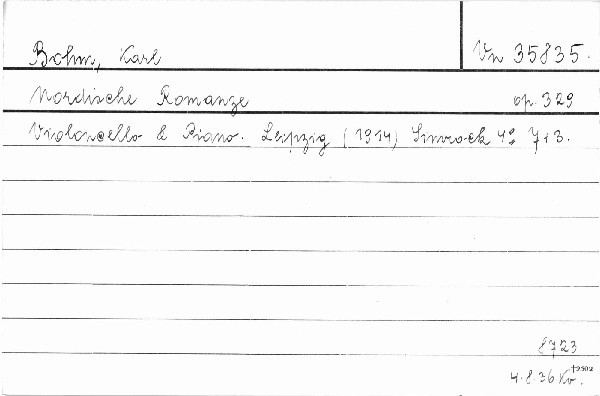 Bohm, Karl Vn 35835.
Nordische Romanze op. 329
Violoncello & Piano. Leipzig (1914) Simrock 4° 7+3.
8723
4.8.36 Kv.